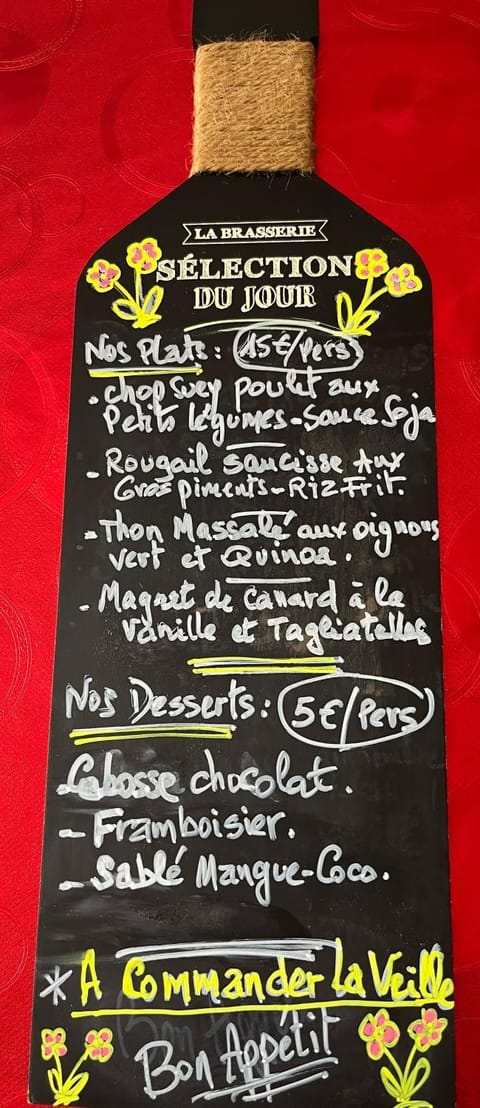 LA BRASSERIE
SÉLECTION
DU JOUR
Nos Plats: 15€/Pers
- Chop Suey poulet aux
Petits légumes-Sauce Soja
- Rougail saucisse Aux
Gros piments-Riz Frit.
- Thon Massalé aux oignons
vert et Quinoa.
- Magret de Canard à la
Vanille et Tagliatelles
Nos Desserts: 5€/Pers
- Cabosse chocolat.
- Framboisier.
- Sablé Mangue-Coco.
* A Commander La Veille
Bon Appétit